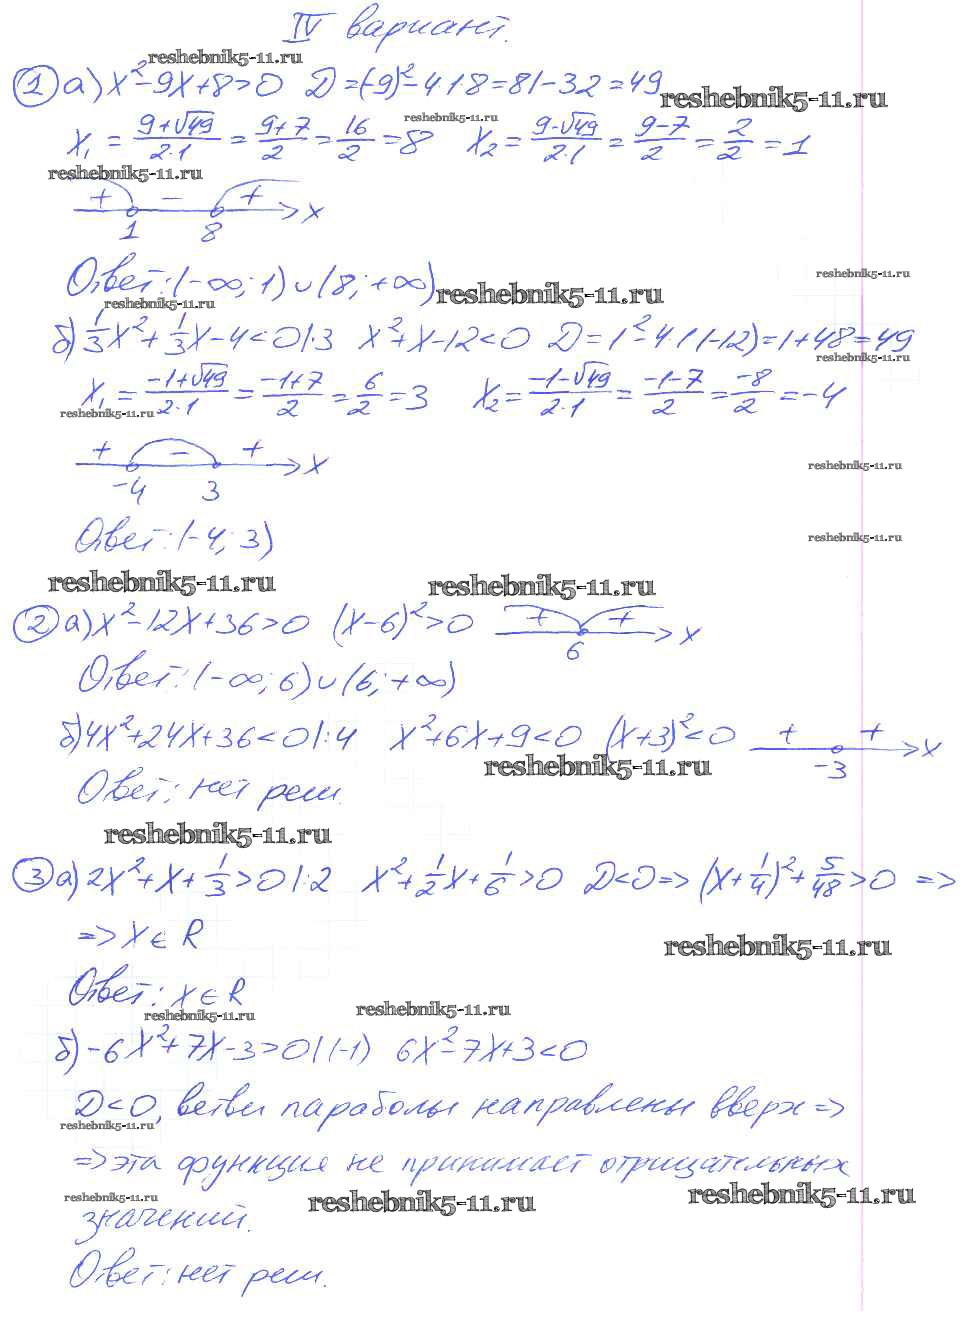 IV вариант.
reshebnik5-11.ru
① а) x²-9x+8>0 D=(-9)²-4·1·8=81-32=49
reshebnik5-11.ru
x₁ = (9+√49)/(2·1) = (9+7)/2 = 16/2 = 8 x₂ = (9-√49)/(2·1) = (9-7)/2 = 2/2 = 1
reshebnik5-11.ru
reshebnik5-11.ru
+ - + x
1 8
Ответ: (-∞; 1) ∪ (8; +∞)
reshebnik5-11.ru
reshebnik5-11.ru
reshebnik5-11.ru
б) 1/3x²+1/3x-4<0 |·3 x²+x-12<0 D=1²-4·1·(-12)=1+48=49
reshebnik5-11.ru
x₁ = (-1+√49)/(2·1) = (-1+7)/2 = 6/2 = 3 x₂ = (-1-√49)/(2·1) = (-1-7)/2 = -8/2 = -4
reshebnik5-11.ru
+ - + x
reshebnik5-11.ru
-4 3
Ответ: (-4; 3)
reshebnik5-11.ru
reshebnik5-11.ru
reshebnik5-11.ru
② а) x²-12x+36>0 (x-6)²>0 + + x
6
Ответ: (-∞; 6) ∪ (6; +∞)
б) 4x²+24x+36<0 |:4 x²+6x+9<0 (x+3)²<0 + + x
reshebnik5-11.ru
-3
Ответ: нет реш.
reshebnik5-11.ru
③ а) 2x²+x+1/3>0 |:2 x²+1/2x+1/6>0 D<0 => (x+1/4)²+5/48>0 =>
=> x ∈ R
reshebnik5-11.ru
Ответ: x ∈ R
reshebnik5-11.ru
reshebnik5-11.ru
б) -6x²+7x-3>0 |·(-1) 6x²-7x+3<0
D<0, ветви параболы направлены вверх =>
reshebnik5-11.ru
=> эта функция не принимает отрицательных
reshebnik5-11.ru
reshebnik5-11.ru
reshebnik5-11.ru
значений.
Ответ: нет реш.